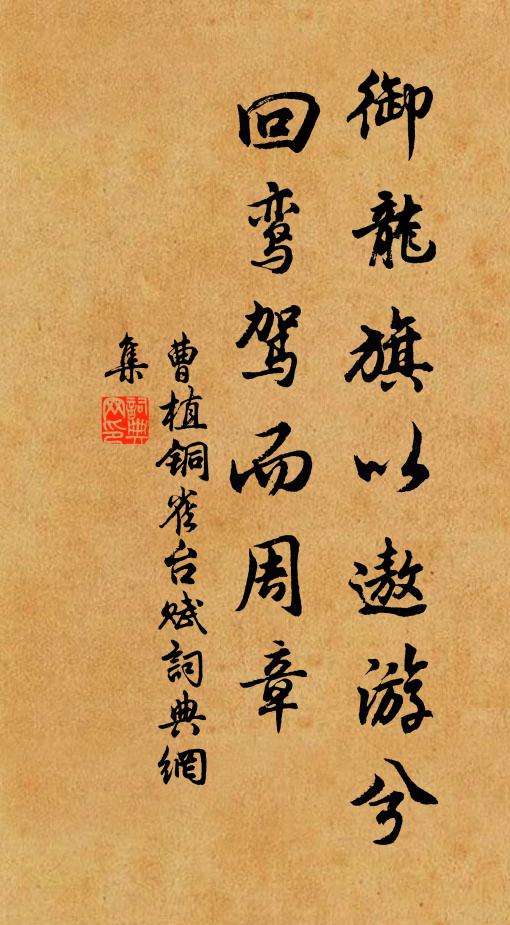 御龍旗以遨游兮
回鸾驾而周章
曹植铜雀台赋詞典網
集
詞典网印